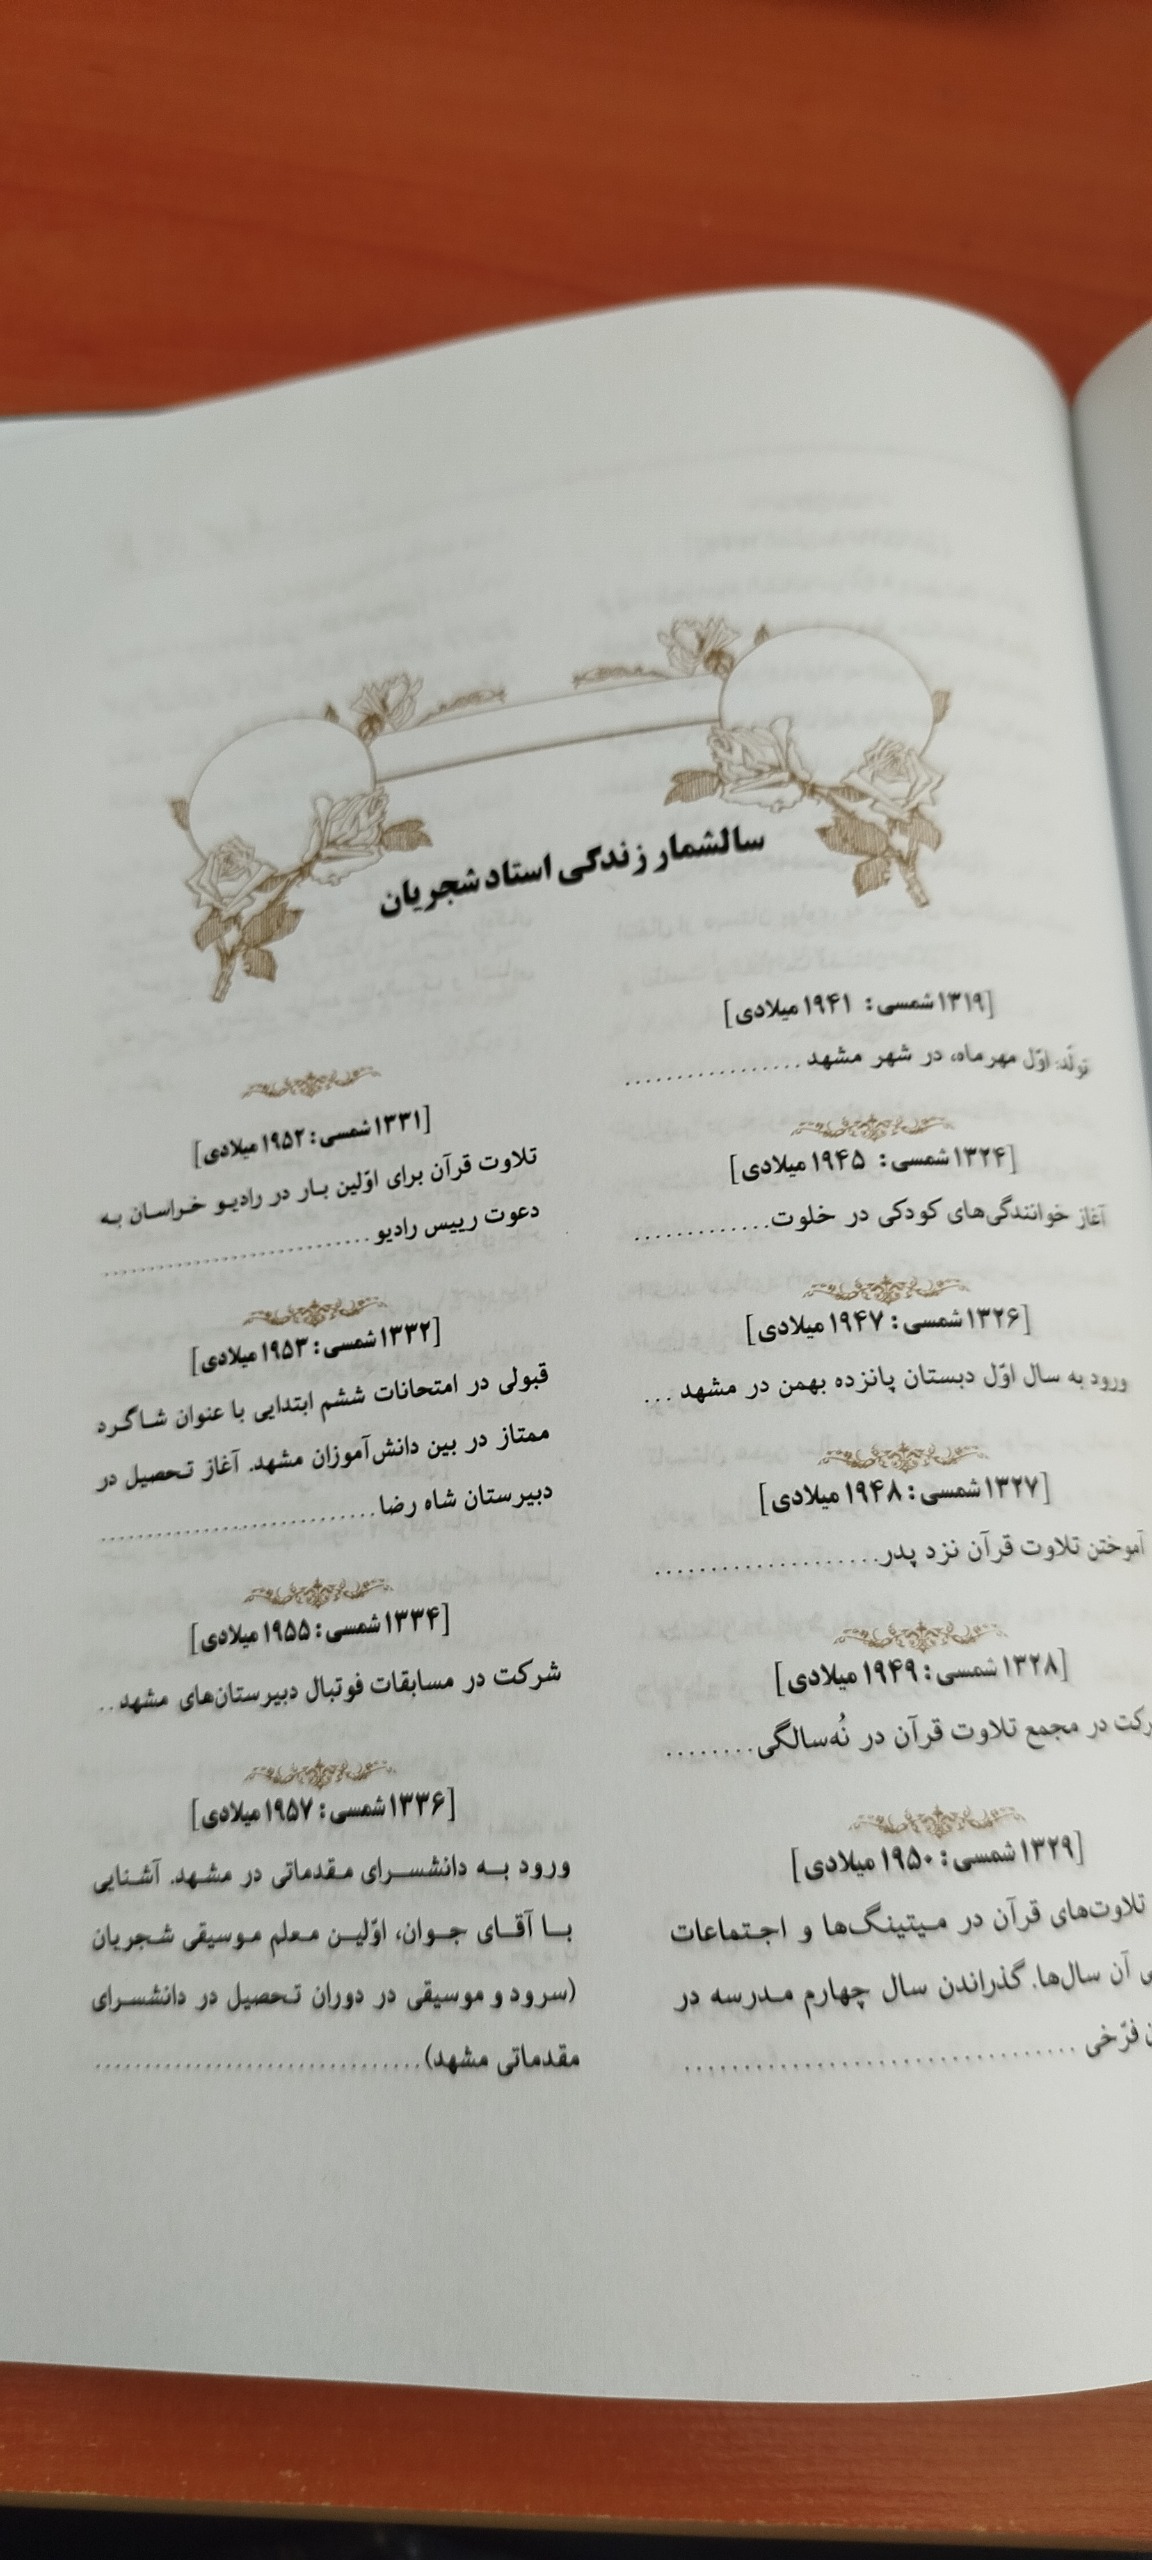 سالشمار زندگی استاد شجریان
[۱۳۱۹ شمسی : ۱۹۴۱ میلادی]
تولّد: اوّل مهرماه، در شهر مشهد ..................
[۱۳۲۴ شمسی : ۱۹۴۵ میلادی]
آغاز خوانندگی‌های کودکی در خلوت..............
[۱۳۲۶ شمسی : ۱۹۴۷ میلادی]
ورود به سال اوّل دبستان پانزده بهمن در مشهد ...
[۱۳۲۷ شمسی : ۱۹۴۸ میلادی]
آموختن تلاوت قرآن نزد پدر......................
[۱۳۲۸ شمسی : ۱۹۴۹ میلادی]
در مجمع تلاوت قرآن در نُه‌سالگی.........
[۱۳۲۹ شمسی : ۱۹۵۰ میلادی]
تلاوت‌های قرآن در میتینگ‌ها و اجتماعات
آن سال‌ها. گذراندن سال چهارم مدرسه در
فرّخی .................................
[۱۳۳۱ شمسی : ۱۹۵۲ میلادی]
تلاوت قرآن برای اوّلین بار در رادیو خراسان به
دعوت رییس رادیو ..............................
[۱۳۳۲ شمسی : ۱۹۵۳ میلادی]
قبولی در امتحانات ششم ابتدایی با عنوان شاگرد
ممتاز در بین دانش‌آموزان مشهد. آغاز تحصیل در
دبیرستان شاه رضا ..............................
[۱۳۳۴ شمسی : ۱۹۵۵ میلادی]
شرکت در مسابقات فوتبال دبیرستان‌های مشهد ..
[۱۳۳۶ شمسی : ۱۹۵۷ میلادی]
ورود به دانشسرای مقدماتی در مشهد. آشنایی
با آقای جوان، اوّلین معلم موسیقی شجریان
(سرود و موسیقی در دوران تحصیل در دانشسرای
مقدماتی مشهد) ..................................